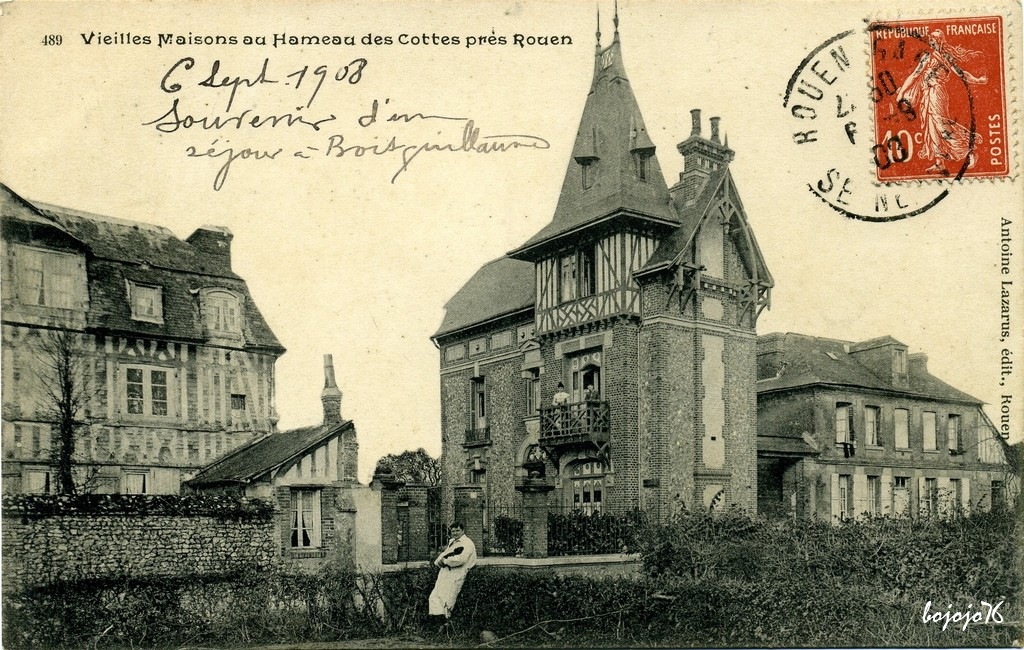 489 Vieilles Maisons au Hameau des Cottes près Rouen
6 Sept. 1908
Souvenir d'un
séjour à Boisguillaume
RÉPUBLIQUE FRANÇAISE
10c
POSTES
ROUEN GARE
SEINE INF
Antoine Lazarus, édit., Rouen
bojojo76